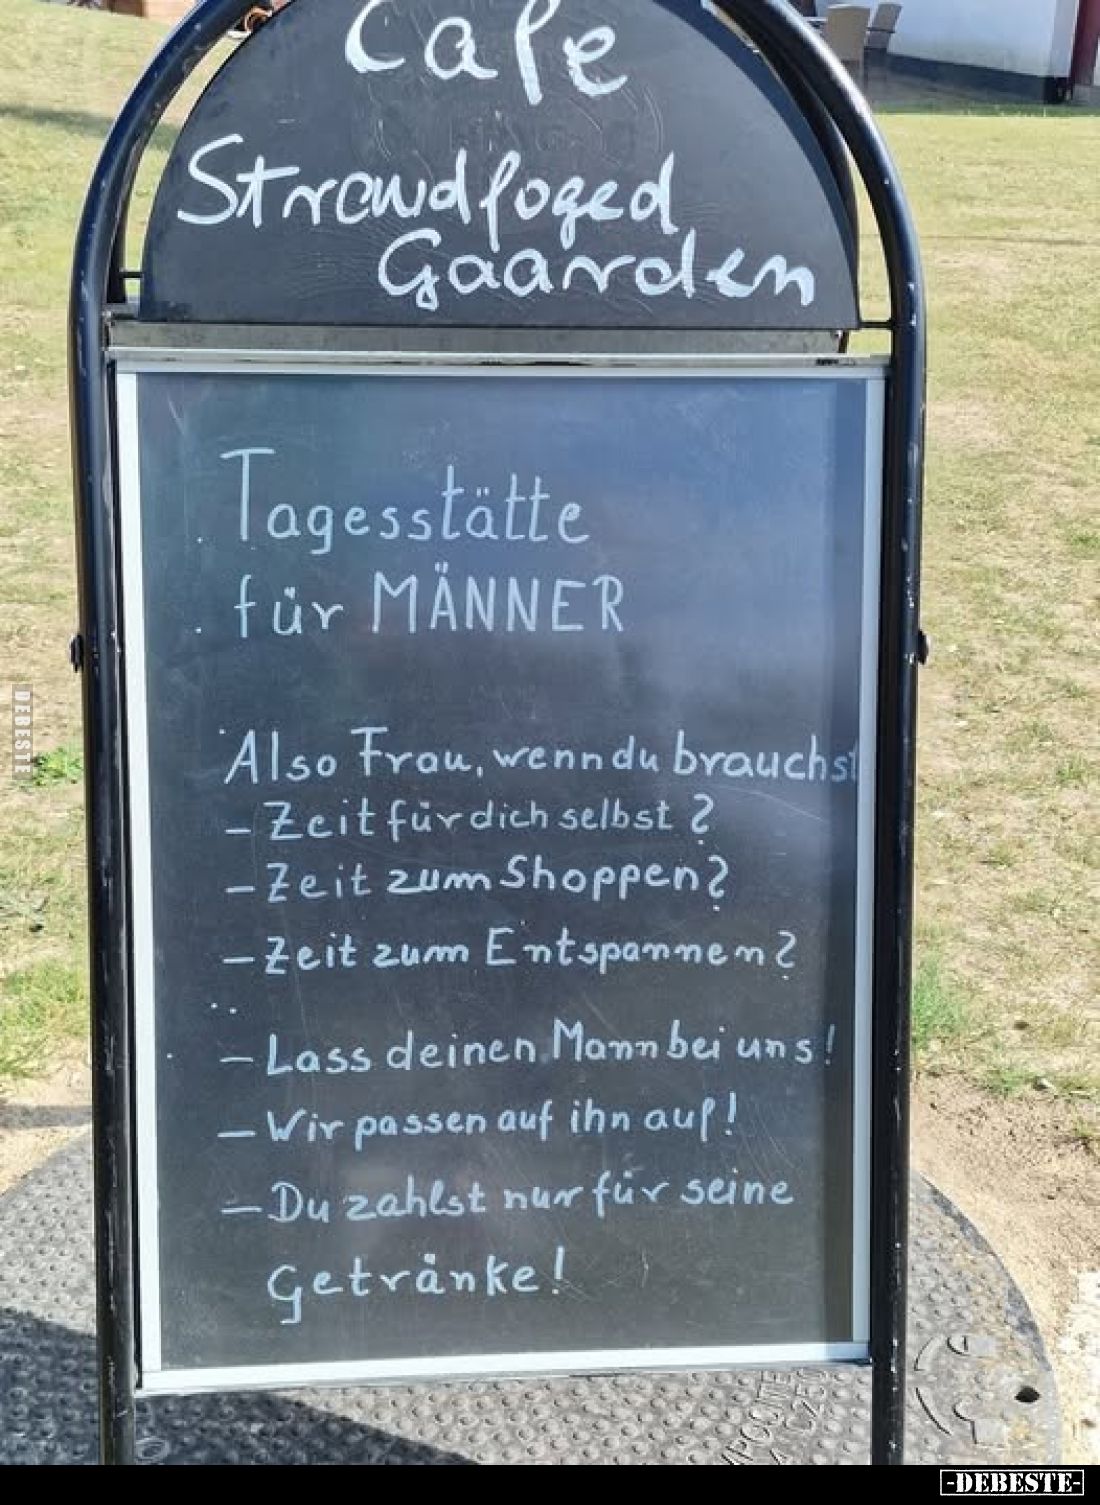 Cafe
Strandfoged
Gaarden
Tagesstätte
für MÄNNER
Also Frau, wenn du brauchst
- Zeit für dich selbst?
- Zeit zum Shoppen?
- Zeit zum Entspannen?
- Lass deinen Mann bei uns!
- Wir passen auf ihn auf!
- Du zahlst nur für seine
Getränke!
DEBESTE
-DEBESTE-